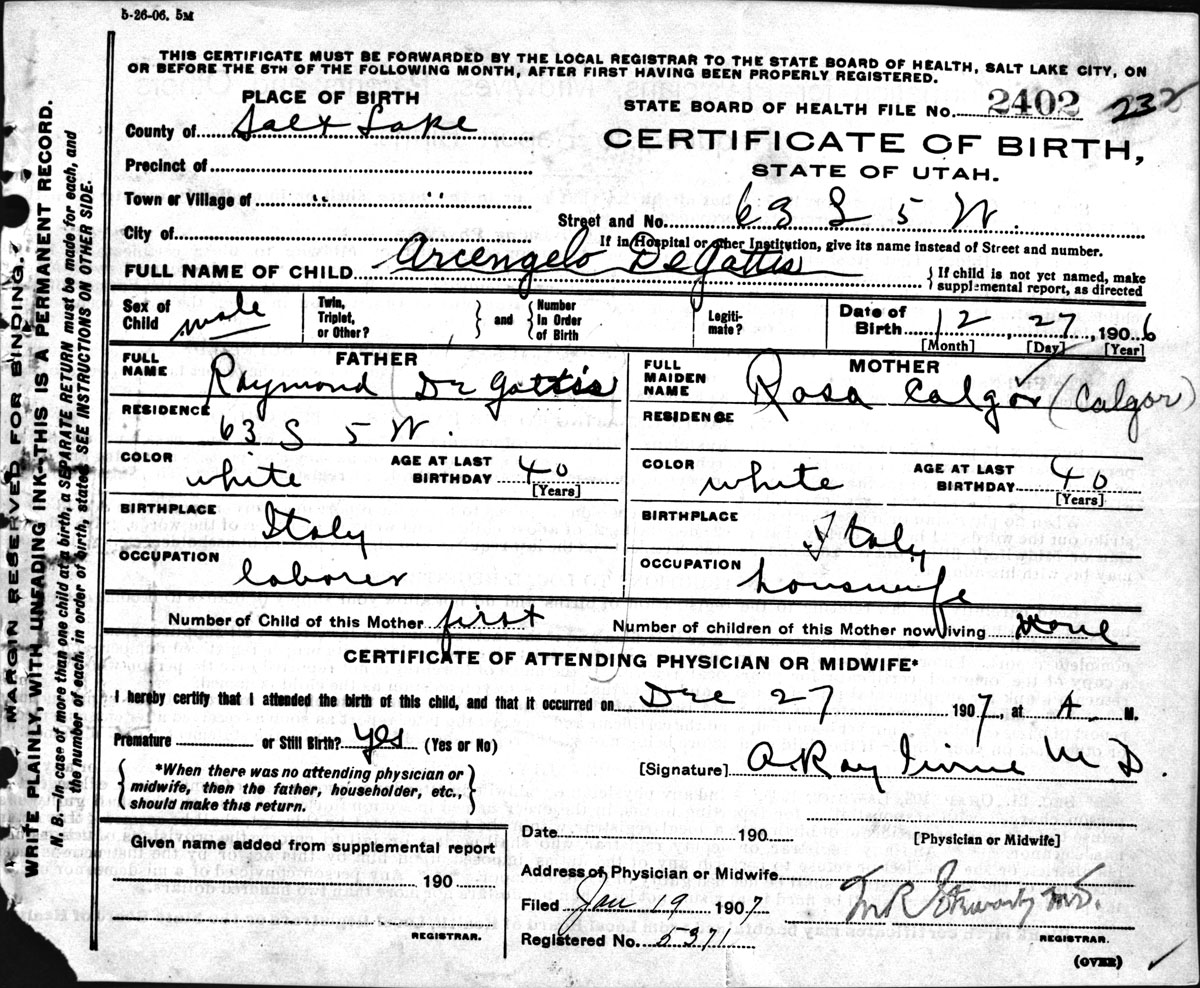 5-26-06. 5M
THIS CERTIFICATE MUST BE FORWARDED BY THE LOCAL REGISTRAR TO THE STATE BOARD OF HEALTH, SALT LAKE CITY, ON
OR BEFORE THE 5TH OF THE FOLLOWING MONTH, AFTER FIRST HAVING BEEN PROPERLY REGISTERED.
PLACE OF BIRTH
STATE BOARD OF HEALTH FILE No. 2402 232
County of Salt Lake
CERTIFICATE OF BIRTH,
STATE OF UTAH.
Precinct of
Town or Village of " "
Street and No. 63 S 5 W.
City of
If in Hospital or other Institution, give its name instead of Street and number.
FULL NAME OF CHILD Arcengelo DeGattis
{ If child is not yet named, make
supplemental report, as directed
Sex of Child male
Twin, Triplet, or Other? } and { Number In Order of Birth
Legiti- mate?
Date of Birth 12 27, 1906
[Month] [Day] [Year]
FATHER
FULL NAME Raymond (De Gattis
RESIDENCE 63 S 5 W.
COLOR white AGE AT LAST BIRTHDAY 40 [Years]
BIRTHPLACE Italy
OCCUPATION laborer
MOTHER
FULL MAIDEN NAME Rosa Calgor (Calgor)
RESIDENCE
COLOR white AGE AT LAST BIRTHDAY 40 [Years]
BIRTHPLACE Italy
OCCUPATION houswife
Number of Child of this Mother first Number of children of this Mother now living none
CERTIFICATE OF ATTENDING PHYSICIAN OR MIDWIFE*
I hereby certify that I attended the birth of this child, and that it occurred on Dec 27 1907, at A. M.
Premature or Still Birth? yes (Yes or No)
[Signature] A Ray Irvine M D.
{ *When there was no attending physician or
midwife, then the father, householder, etc.,
should make this return. }
Date 190
[Physician or Midwife]
Given name added from supplemental report
190
REGISTRAR.
Address of Physician or Midwife
Filed Jan 19 1907 M.D.
Registered No. 5371
REGISTRAR.
(OVER)
MARGIN RESERVED FOR BINDING.
WRITE PLAINLY, WITH UNFADING INK-THIS IS A PERMANENT RECORD.
N. B.—In case of more than one child at a birth, a SEPARATE RETURN must be made for each, and
the number of each, in order of birth, stated. SEE INSTRUCTIONS ON OTHER SIDE.